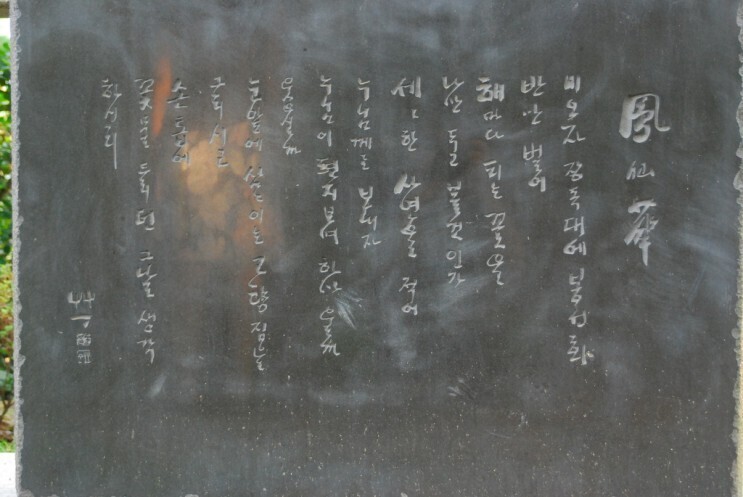 鳳仙華
비오자 장독대에 봉선화
반만 벌어
해마다 피는 꽃을
나만 두고 볼것인가
세세한 사연을 적어
누님께로 보내자
누님이 편지보며 하마 울까
웃으실까
눈앞에 삼삼이는 고향집을
그리시고
손톱에
꽃물 들이던 그날 생각
하시리
艸丁